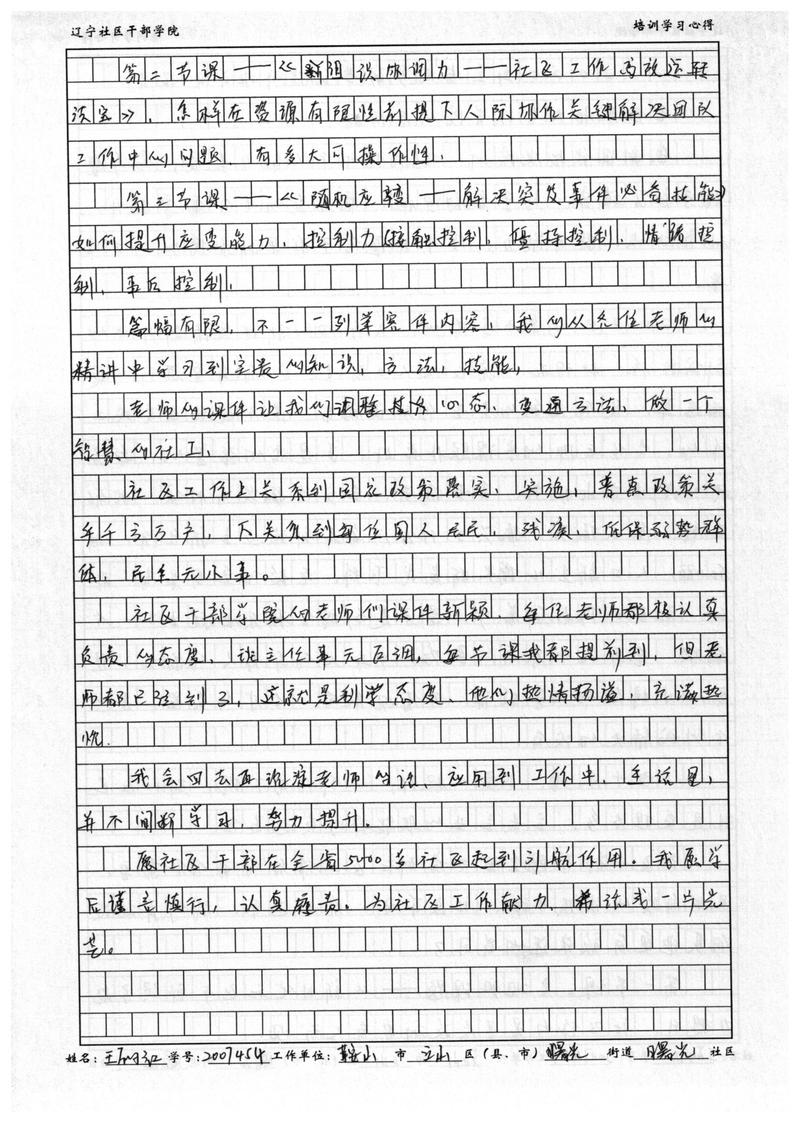 辽宁社区干部学院 培训学习心得
第二节课——《新 识协调力——社区工作高效运转
法宝》,怎样在资源有限性前提下人际协作关键解决团队
工作中的问题,有多大可操作性,
第三节课——《随机应变——解决突发事件必备技能》
如何提升应变能力,控制力(接触控制,僵持控制,情绪控
制,事后控制,
篇幅有限,不一一列举容件内容,我们从各位老师的
精讲中学习到宝贵的知识,方法,技能,
老师的课件让我们调整 心态,变通方法,做一个
智慧的社工,
社区工作上关系到国家政策落实,实施,普惠政策关
乎千家万户,下关系到每位国人居民,残疾,低保弱势群
体,民生无小事。
社区干部学院的老师们课件新颖,每位老师都极认真
负责的态度,班主任 ,每节课我都提前到,但老
师都已经到了,这就是 态度,他们热情扬溢,充满热
忱,
我会回去再 老师笔记,应用到工作中,生活里,
并不间断学习,努力提升。
愿社区干部在全省5400多社区起到引航作用。我愿学
后谨言慎行,认真履责。为社区工作献力, 一片光
芒。
姓名: 学号:2007454工作单位:鞍山 市 立山 区(县、市)曙光 街道 曙光 社区